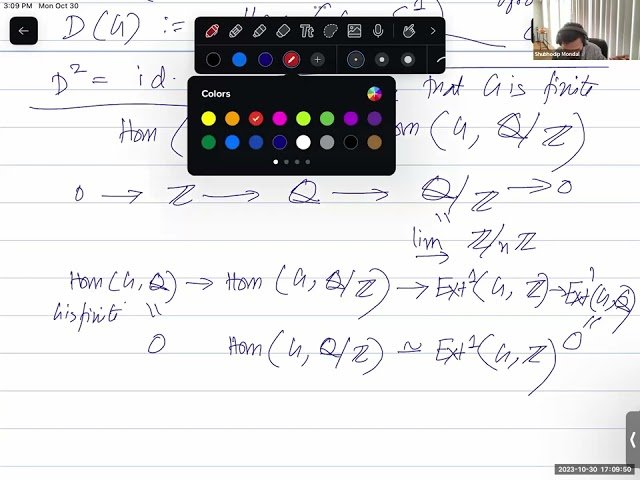 3:09 PM Mon Oct 30
D(G) :=
Shubhodip Mondal
Tt
D² = id.
that G is finite
Colors
Hom (
Hom (G, Q/Z)
0 → Z → Q → Q/Z → 0
lim Z/nZ
Hom(G, Q) → Hom (G, Q/Z) → Ext¹(G, Z) → Ext¹(G, Q)
G is finite
0 Hom(G, Q/Z) ≃ Ext¹(G, Z) 0
2023-10-30 17:09:50